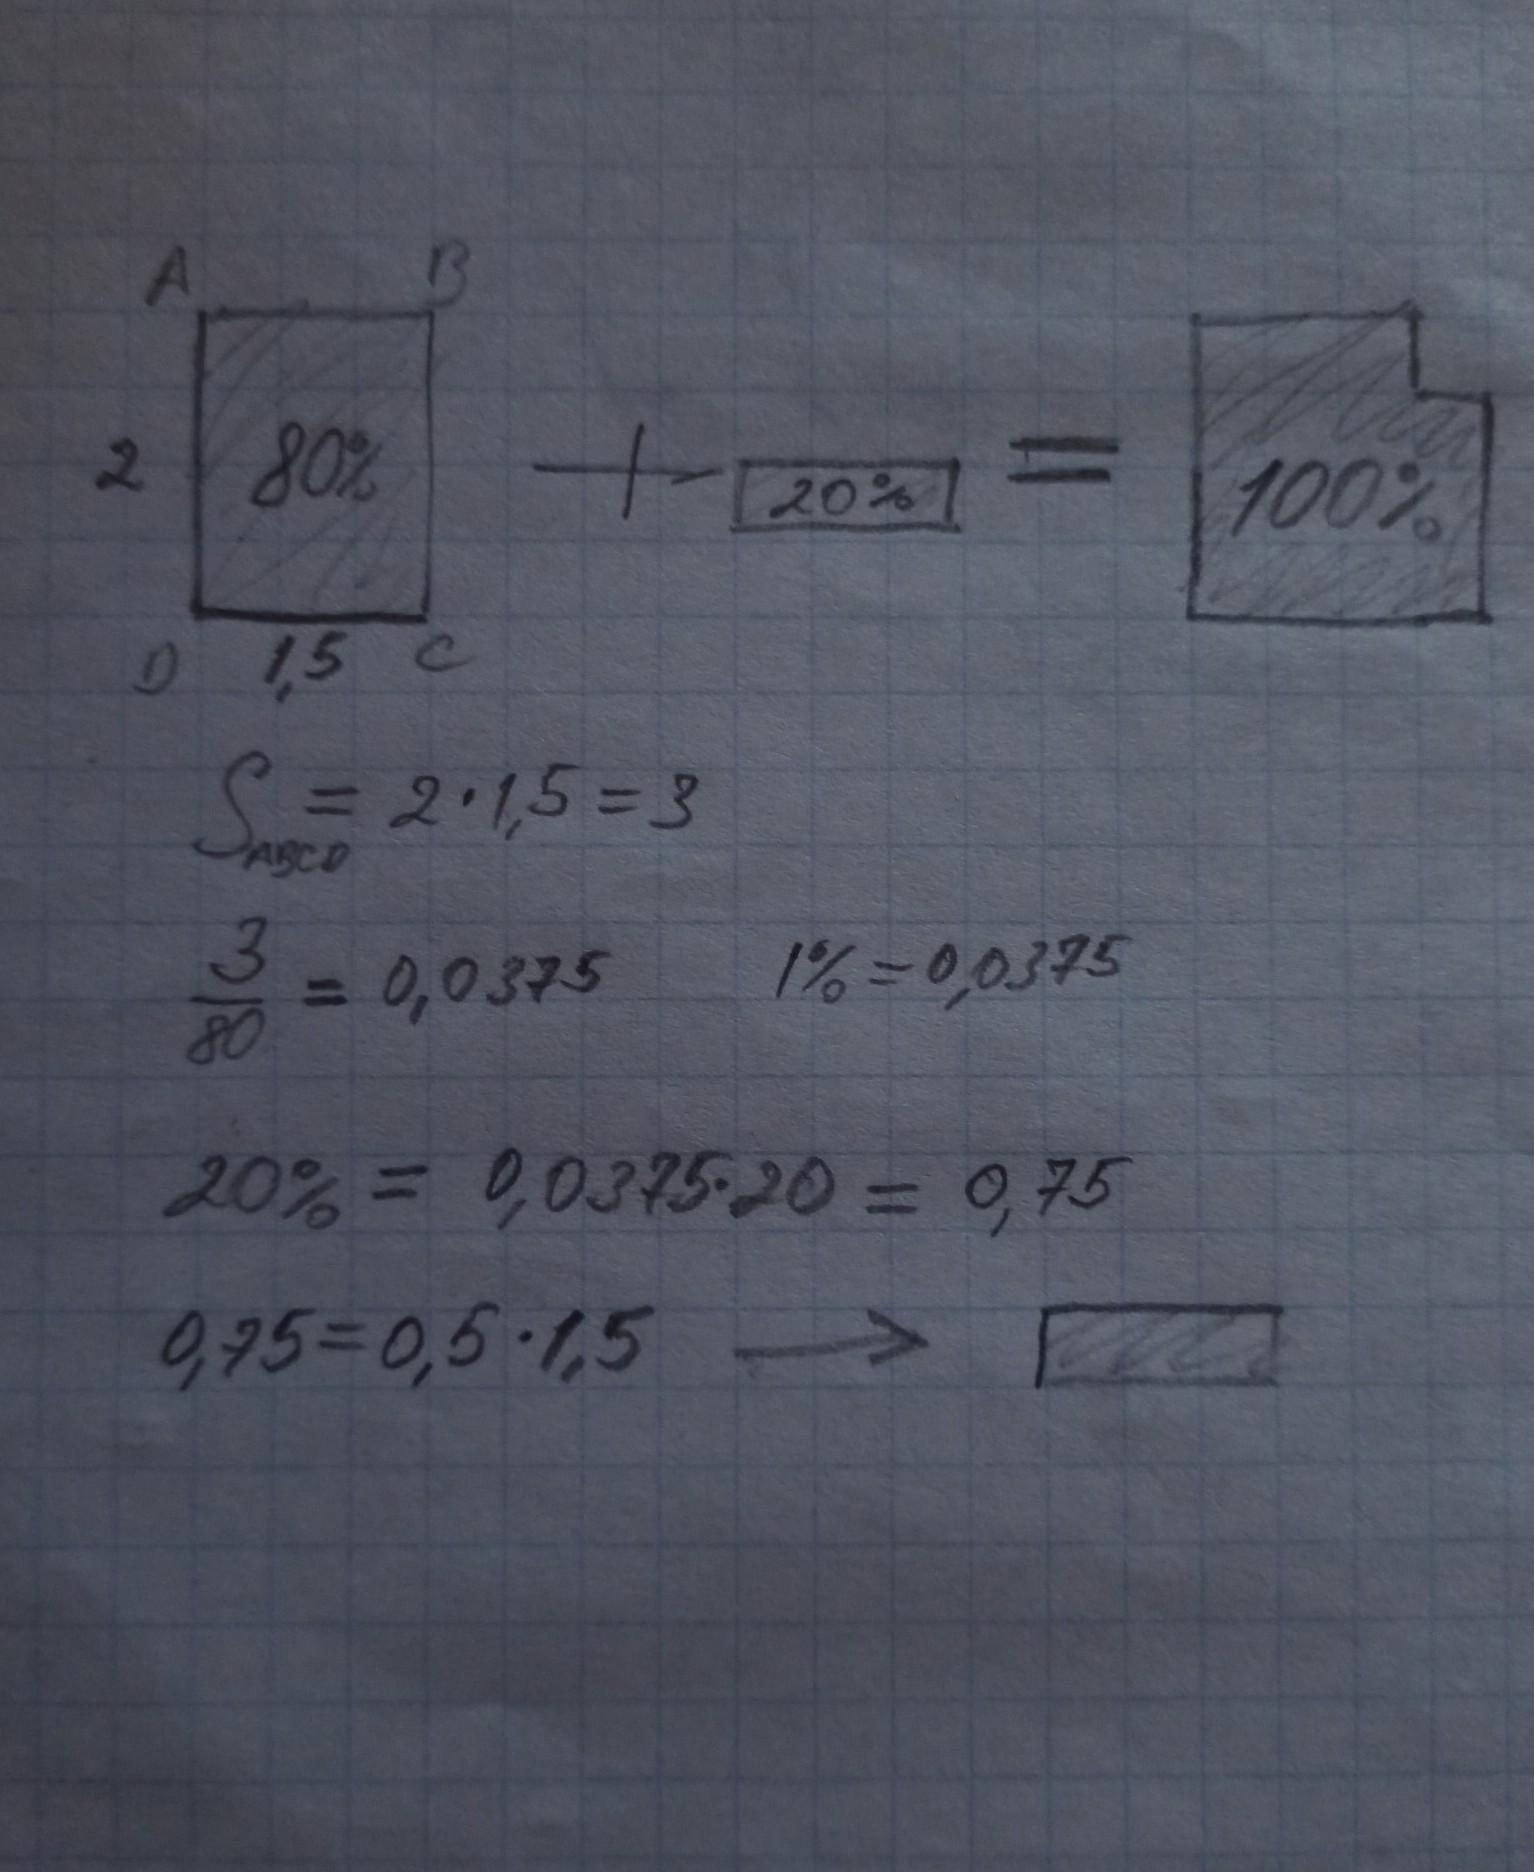 A B
2 80% + 20% = 100%
D 1,5 C
S ABCD = 2·1,5=3
3/80 = 0,0375 1%=0,0375
20% = 0,0375·20 = 0,75
0,75=0,5·1,5 →